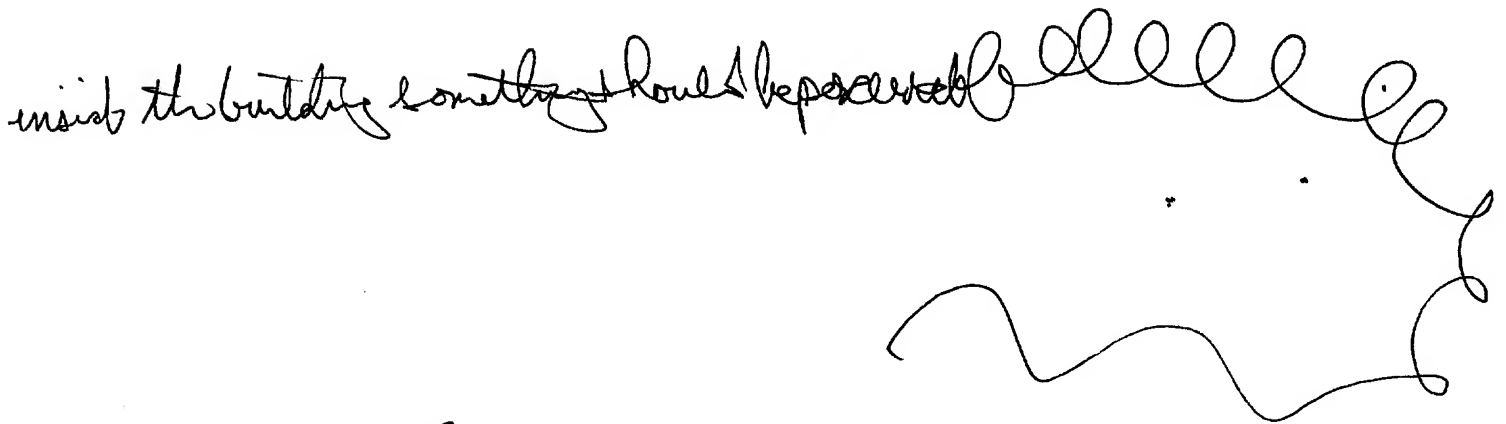 inside the building something should be perceived